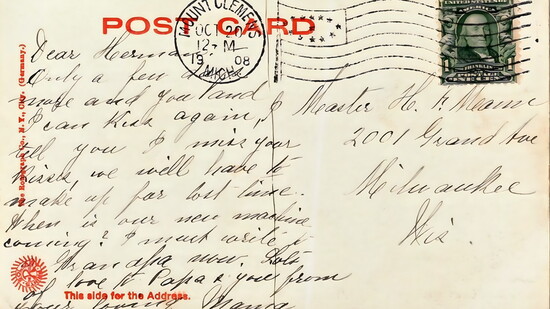 POST CARD
MOUNT CLEMENS
OCT 20
12-M
1908
MICH.
UNITED STATES OF
FRANKLIN
POSTAGE
Dear Herman
Only a few
more and you and
I can kiss again, I
tell you I miss your
kisses, we will have to
make up for lost time.
When is our new machine
coming? I must write to
Grandpa now. Lots
of love to Papa & you from
your loving Mama
Master H.
2001 Grand Ave
Milwaukee
Wis.
Co., N.Y., City. (Germany.)
This side for the Address.